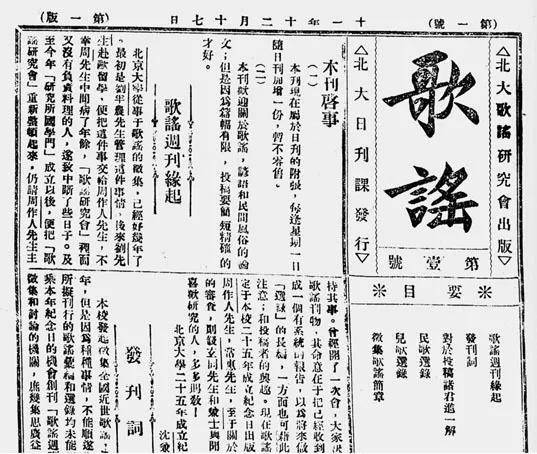 (第一號)
十一年十二月十七日
(第一版)
歌謠
△北大歌謠研究會出版▽
△北大日刊課發行▽
第壹號
※要目※
歌謠週刊緣起
發刊詞
對於投稿諸君進一解
民歌選錄
兒歌選錄
徵集歌謠簡章
本刊啓事
(一)
本刊現在屬於日刊的附張,每逢星期一日
隨日刊加增一份,暫不零售。
(二)
本刊歡迎關於歌謠,諺語和民間風俗的論
文;但是因爲篇幅有限,投稿要簡短精確的
才好。
歌謠週刊緣起
北京大學從事于歌謠的徵集,已經好幾年了
。最初是劉半農先生管理這件事情,後來劉先
生赴歐留學,便把這件事交給周作人先生,不
幸周先生中間病了年餘,「歌謠研究會」裡面
又沒有負責料理的人,遂致中斷了些日子。及
至今年「研究所國學門」成立以後,便把「歌
謠研究會」重新整頓起來,仍請周作人先生主
持其事。曾經開了一次會,大家決
歌謠刊物,其命意在于把已經收到
成一個有系統的報告,以爲將來做
「選錄」的長編,一方面也可藉此
注意,和投稿者的興趣。現在歌謠
定于本校二十五年成立紀念日出版
周作人先生,常惠先生,至于關於
的審查,則疑玄同先生和
喜歡研究的人,多多賜教!
北京大學二十五年成立紀
沈
發刊詞
本校發起徵集全國近世歌謠,
年,但是因爲種種事情,不能順遂
所擬刊行的歌謠彙編和選錄均未能
乘本年紀念日的機會創刊「歌謠週
徵集和討論的機關,庶幾集思廣益